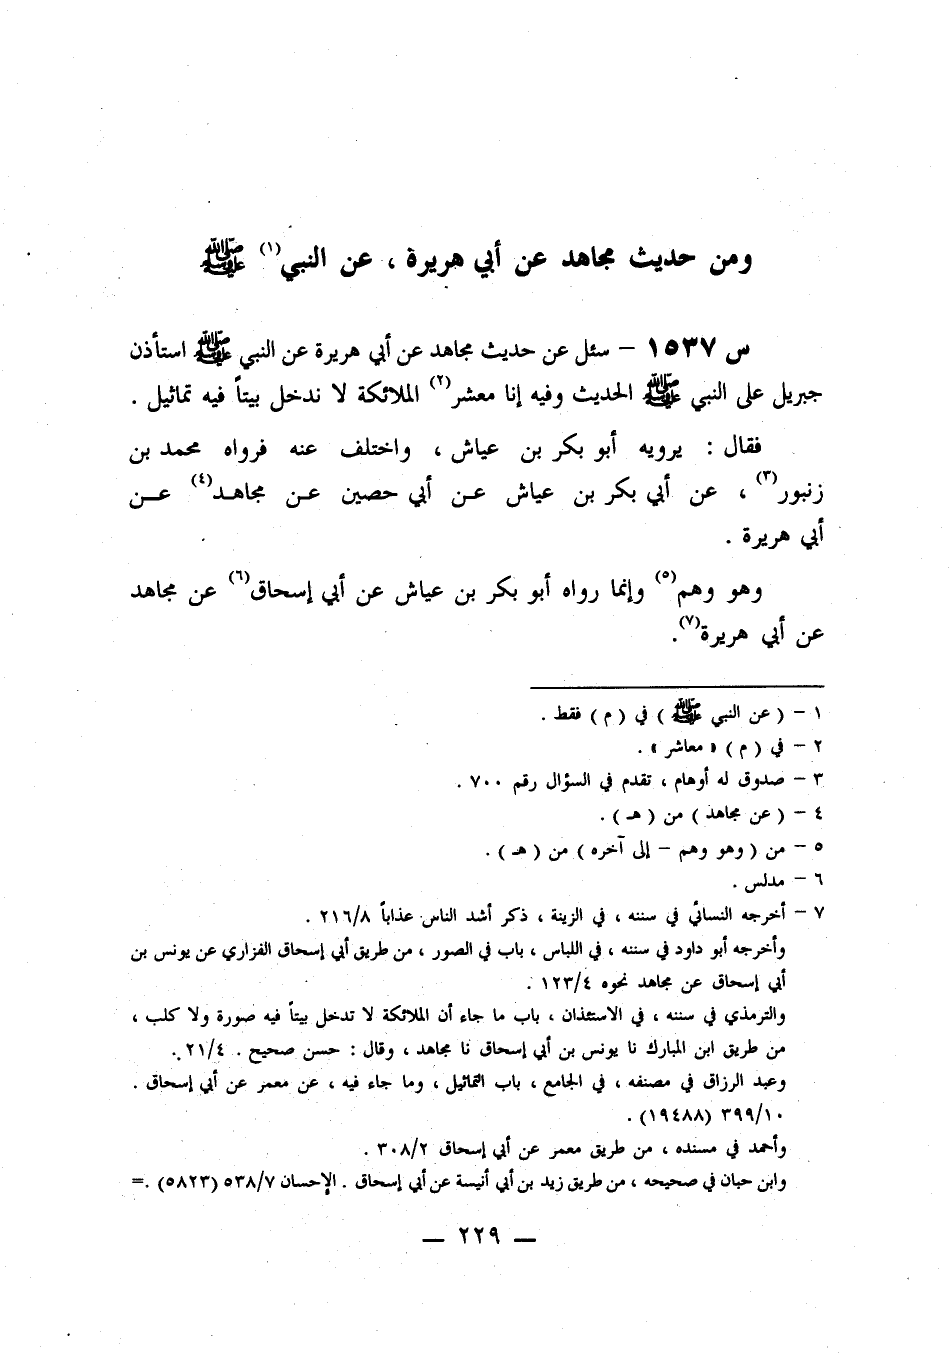 ومن حديث مجاهد عن أبي هريرة ، عن النبي(١) ﷺ
س ١٥٣٧ – سئل عن حديث مجاهد عن أبي هريرة عن النبي ﷺ استأذن
جبريل على النبي ﷺ الحديث وفيه إنا معشر(٢) الملائكة لا ندخل بيتاً فيه تماثيل .
فقال : يرويه أبو بكر بن عياش ، واختلف عنه فرواه محمد بن
زنبور(٣) ، عن أبي بكر بن عياش عن أبي حصين عن مجاهد(٤) عن
أبي هريرة .
وهو وهم(٥) وإنما رواه أبو بكر بن عياش عن أبي إسحاق(٦) عن مجاهد
عن أبي هريرة(٧).
١ – ( عن النبي ﷺ ) في ( م ) فقط .
٢ – في ( م ) « معاشر » .
٣ – صدوق له أوهام ، تقدم في السؤال رقم ٧٠٠ .
٤ – ( عن مجاهد ) من ( هـ ) .
٥ – من ( وهو وهم – إلى آخره ) من ( هـ ) .
٦ – مدلس .
٧ – أخرجه النسائي في سننه ، في الزينة ، ذكر أشد الناس عذاباً ٢١٦/٨ .
وأخرجه أبو داود في سننه ، في اللباس ، باب في الصور ، من طريق أبي إسحاق الفزاري عن يونس بن
أبي إسحاق عن مجاهد نحوه ١٢٣/٤ .
والترمذي في سننه ، في الاستئذان ، باب ما جاء أن الملائكة لا تدخل بيتاً فيه صورة ولا كلب ،
من طريق ابن المبارك نا يونس بن أبي إسحاق نا مجاهد ، وقال : حسن صحيح . ٢١/٤ .
وعبد الرزاق في مصنفه ، في الجامع ، باب التماثيل ، وما جاء فيه ، عن معمر عن أبي إسحاق .
٣٩٩/١٠ (١٩٤٨٨) .
وأحمد في مسنده ، من طريق معمر عن أبي إسحاق ٣٠٨/٢ .
وابن حبان في صحيحه ، من طريق زيد بن أبي أنيسة عن أبي إسحاق . الإحسان ٥٣٨/٧ (٥٨٢٣) .=
— ٢٢٩ —